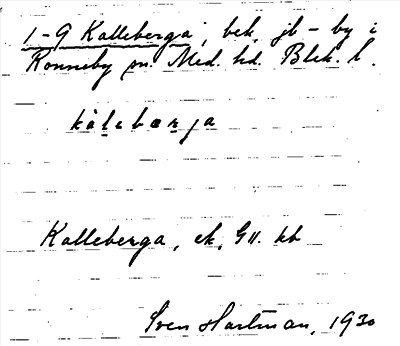 1-9 Kalleberga, bek. jb-by i
Ronneby sn. Med. hd. Blek. l.
kàlebærja
Kalleberga, ek, Gll. kb
Sven Hartman, 1930